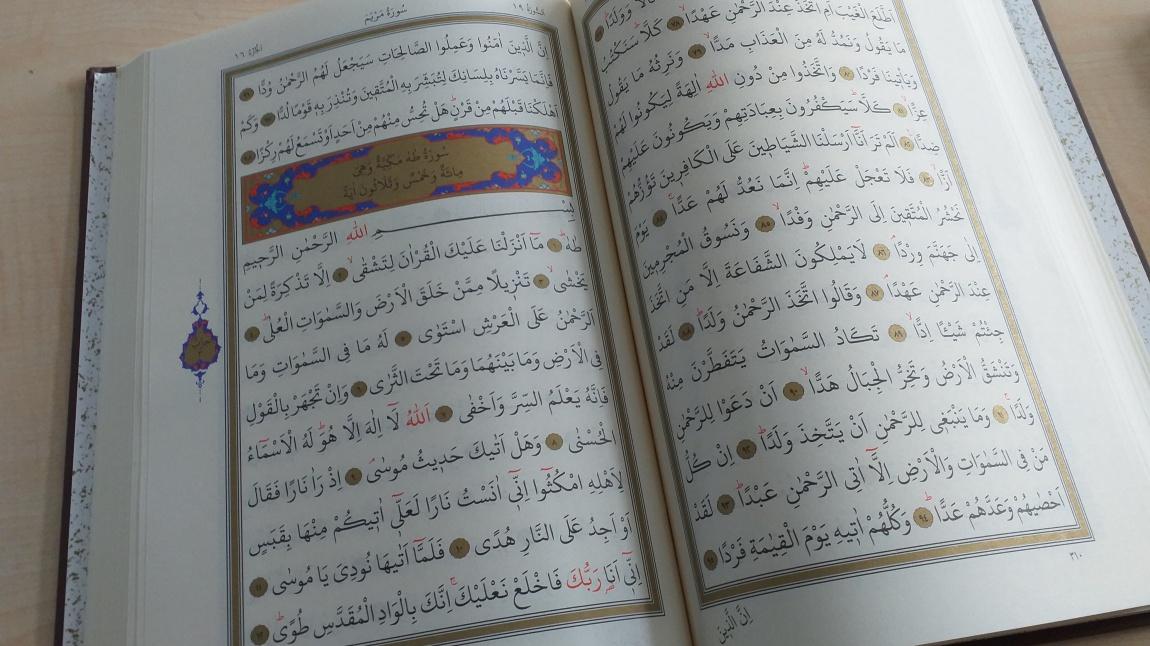 وَوَلَدًا ٧٧
اَطَّلَعَ الْغَيْبَ اَمِ اتَّخَذَ عِنْدَ الرَّحْمٰنِ عَهْدًا ٧٨ كَلَّا سَنَكْتُبُ
مَا يَقُولُ وَنَمُدُّ لَهُ مِنَ الْعَذَابِ مَدًّا ٧٩ وَنَرِثُهُ مَا يَقُولُ
وَيَأْتِينَا فَرْدًا ٨٠ وَاتَّخَذُوا مِنْ دُونِ اللّٰهِ اٰلِهَةً لِيَكُونُوا لَهُمْ
عِزًّا ٨١ كَلَّا سَيَكْفُرُونَ بِعِبَادَتِهِمْ وَيَكُونُونَ عَلَيْهِمْ
ضِدًّا ٨٢ اَلَمْ تَرَ اَنَّٓا اَرْسَلْنَا الشَّيَاطِينَ عَلَى الْكَافِرِينَ تَؤُزُّهُمْ
اَزًّا ٨٣ فَلَا تَعْجَلْ عَلَيْهِمْ اِنَّمَا نَعُدُّ لَهُمْ عَدًّا ٨٤ يَوْمَ
نَحْشُرُ الْمُتَّقِينَ اِلَى الرَّحْمٰنِ وَفْدًا ٨٥ وَنَسُوقُ الْمُجْرِمِينَ
اِلٰى جَهَنَّمَ وِرْدًا ٨٦ لَا يَمْلِكُونَ الشَّفَاعَةَ اِلَّا مَنِ اتَّخَذَ
عِنْدَ الرَّحْمٰنِ عَهْدًا ٨٧ وَقَالُوا اتَّخَذَ الرَّحْمٰنُ وَلَدًا ٨٨ لَقَدْ
جِئْتُمْ شَيْـًٔا اِدًّا ٨٩ تَكَادُ السَّمٰوَاتُ يَتَفَطَّرْنَ مِنْهُ
وَتَنْشَقُّ الْاَرْضُ وَتَخِرُّ الْجِبَالُ هَدًّا ٩٠ اَنْ دَعَوْا لِلرَّحْمٰنِ
وَلَدًا ٩١ وَمَا يَنْبَغِي لِلرَّحْمٰنِ اَنْ يَتَّخِذَ وَلَدًا ٩٢ اِنْ كُلُّ
مَنْ فِي السَّمٰوَاتِ وَالْاَرْضِ اِلَّٓا اٰتِي الرَّحْمٰنِ عَبْدًا ٩٣ لَقَدْ
اَحْصٰيهُمْ وَعَدَّهُمْ عَدًّا ٩٤ وَكُلُّهُمْ اٰتِيهِ يَوْمَ الْقِيٰمَةِ فَرْدًا ٩٥
٣١٠
اِنَّ الَّذِينَ
سُورَةُ مَرْيَمَ
١٩
١٦
اِنَّ الَّذِينَ اٰمَنُوا وَعَمِلُوا الصَّالِحَاتِ سَيَجْعَلُ لَهُمُ الرَّحْمٰنُ وُدًّا ٩٦
فَاِنَّمَا يَسَّرْنَاهُ بِلِسَانِكَ لِتُبَشِّرَ بِهِ الْمُتَّقِينَ وَتُنْذِرَ بِهِ قَوْمًا لُدًّا ٩٧ وَكَمْ
اَهْلَكْنَا قَبْلَهُمْ مِنْ قَرْنٍ هَلْ تُحِسُّ مِنْهُمْ مِنْ اَحَدٍ اَوْ تَسْمَعُ لَهُمْ رِكْزًا ٩٨
سُورَةُ طٰهٰ مَكِّيَّةٌ وَهِيَ
مِائَةٌ وَخَمْسٌ وَثَلَاثُونَ اٰيَةً
بِسْمِ اللّٰهِ الرَّحْمٰنِ الرَّحِيمِ
طٰهٰ ١ مَٓا اَنْزَلْنَا عَلَيْكَ الْقُرْاٰنَ لِتَشْقٰى ٢ اِلَّا تَذْكِرَةً لِمَنْ
يَخْشٰى ٣ تَنْزِيلًا مِمَّنْ خَلَقَ الْاَرْضَ وَالسَّمٰوَاتِ الْعُلٰى ٤
اَلرَّحْمٰنُ عَلَى الْعَرْشِ اسْتَوٰى ٥ لَهُ مَا فِي السَّمٰوَاتِ وَمَا
فِي الْاَرْضِ وَمَا بَيْنَهُمَا وَمَا تَحْتَ الثَّرٰى ٦ وَاِنْ تَجْهَرْ بِالْقَوْلِ
فَاِنَّهُ يَعْلَمُ السِّرَّ وَاَخْفٰى ٧ اَللّٰهُ لَٓا اِلٰهَ اِلَّا هُوَ لَهُ الْاَسْمَٓاءُ
الْحُسْنٰى ٨ وَهَلْ اَتٰيكَ حَدِيثُ مُوسٰى ٩ اِذْ رَاٰ نَارًا فَقَالَ
لِاَهْلِهِ امْكُثُٓوا اِنِّٓي اٰنَسْتُ نَارًا لَعَلِّٓي اٰتِيكُمْ مِنْهَا بِقَبَسٍ
اَوْ اَجِدُ عَلَى النَّارِ هُدًى ١٠ فَلَمَّٓا اَتٰيهَا نُودِيَ يَا مُوسٰى ١١
اِنِّٓي اَنَا رَبُّكَ فَاخْلَعْ نَعْلَيْكَ اِنَّكَ بِالْوَادِ الْمُقَدَّسِ طُوًى ١٢